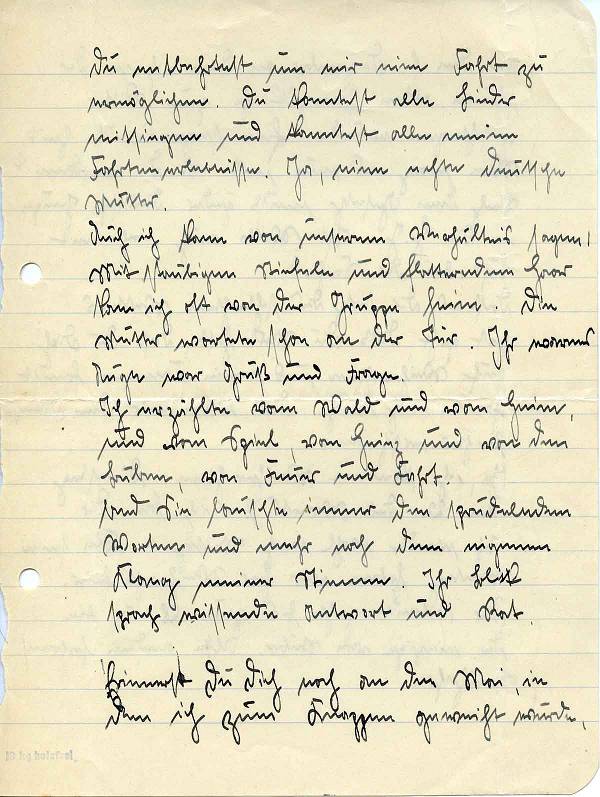 Du entbehrtest um mir eine Fahrt zu
ermöglichen. Du konntest alle Lieder
mitsingen und kanntest alle meine
Fahrtenerlebnisse. Ja, eine echte deutsche
Mutter.
Auch ich kann von unserem Verhältnis sagen:
Mit staubigen Stiefeln und flatterndem Haar
kam ich oft von der Gruppe heim. Die
Mutter wartete schon an der Tür. Ihr warmes
Auge war Gruß und Frage.
Ich erzählte vom Wald und vom Heim,
und vom Spiel, vom Heinz und von den
Buben, von Feuer und Fahrt.
Und Sie lauschte immer den sprudelnden
Worten und mehr noch dem eigenen
Klang meiner Stimme. Ihr Blick
sprach wissende Antwort und Rat.
Erinnerst Du Dich noch an den Mai, in
dem ich zum Knappen geweiht wurde,